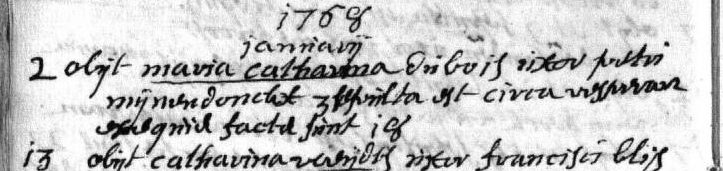 1768
januarij
2 obijt maria catharina dubois uxor petri
mijnendonckx 3 sepulta est circa vesperam
exequiæ factæ sunt 18
13 obijt catharina uxor francisci